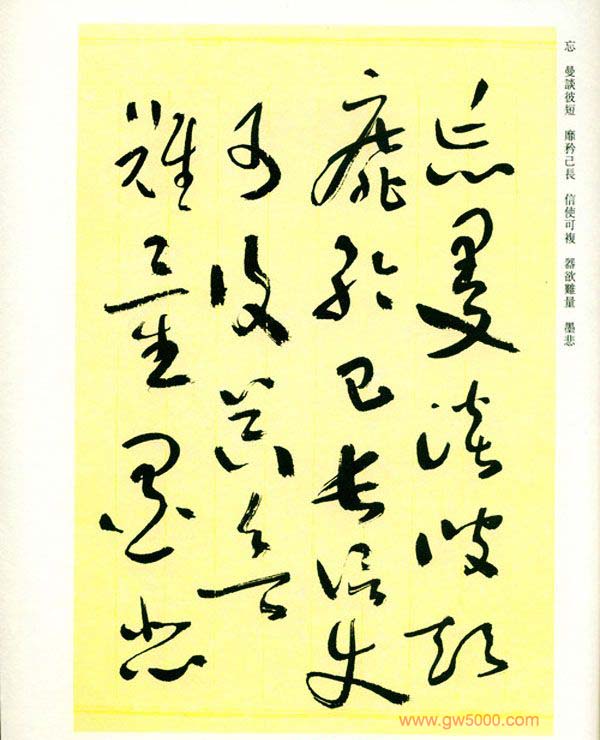 忘　曼談彼短　靡矜己長　信使可複　器欲難量　墨悲
忘曼談彼短
靡矜己長信使
可復器欲
難量墨悲
www.gw5000.com